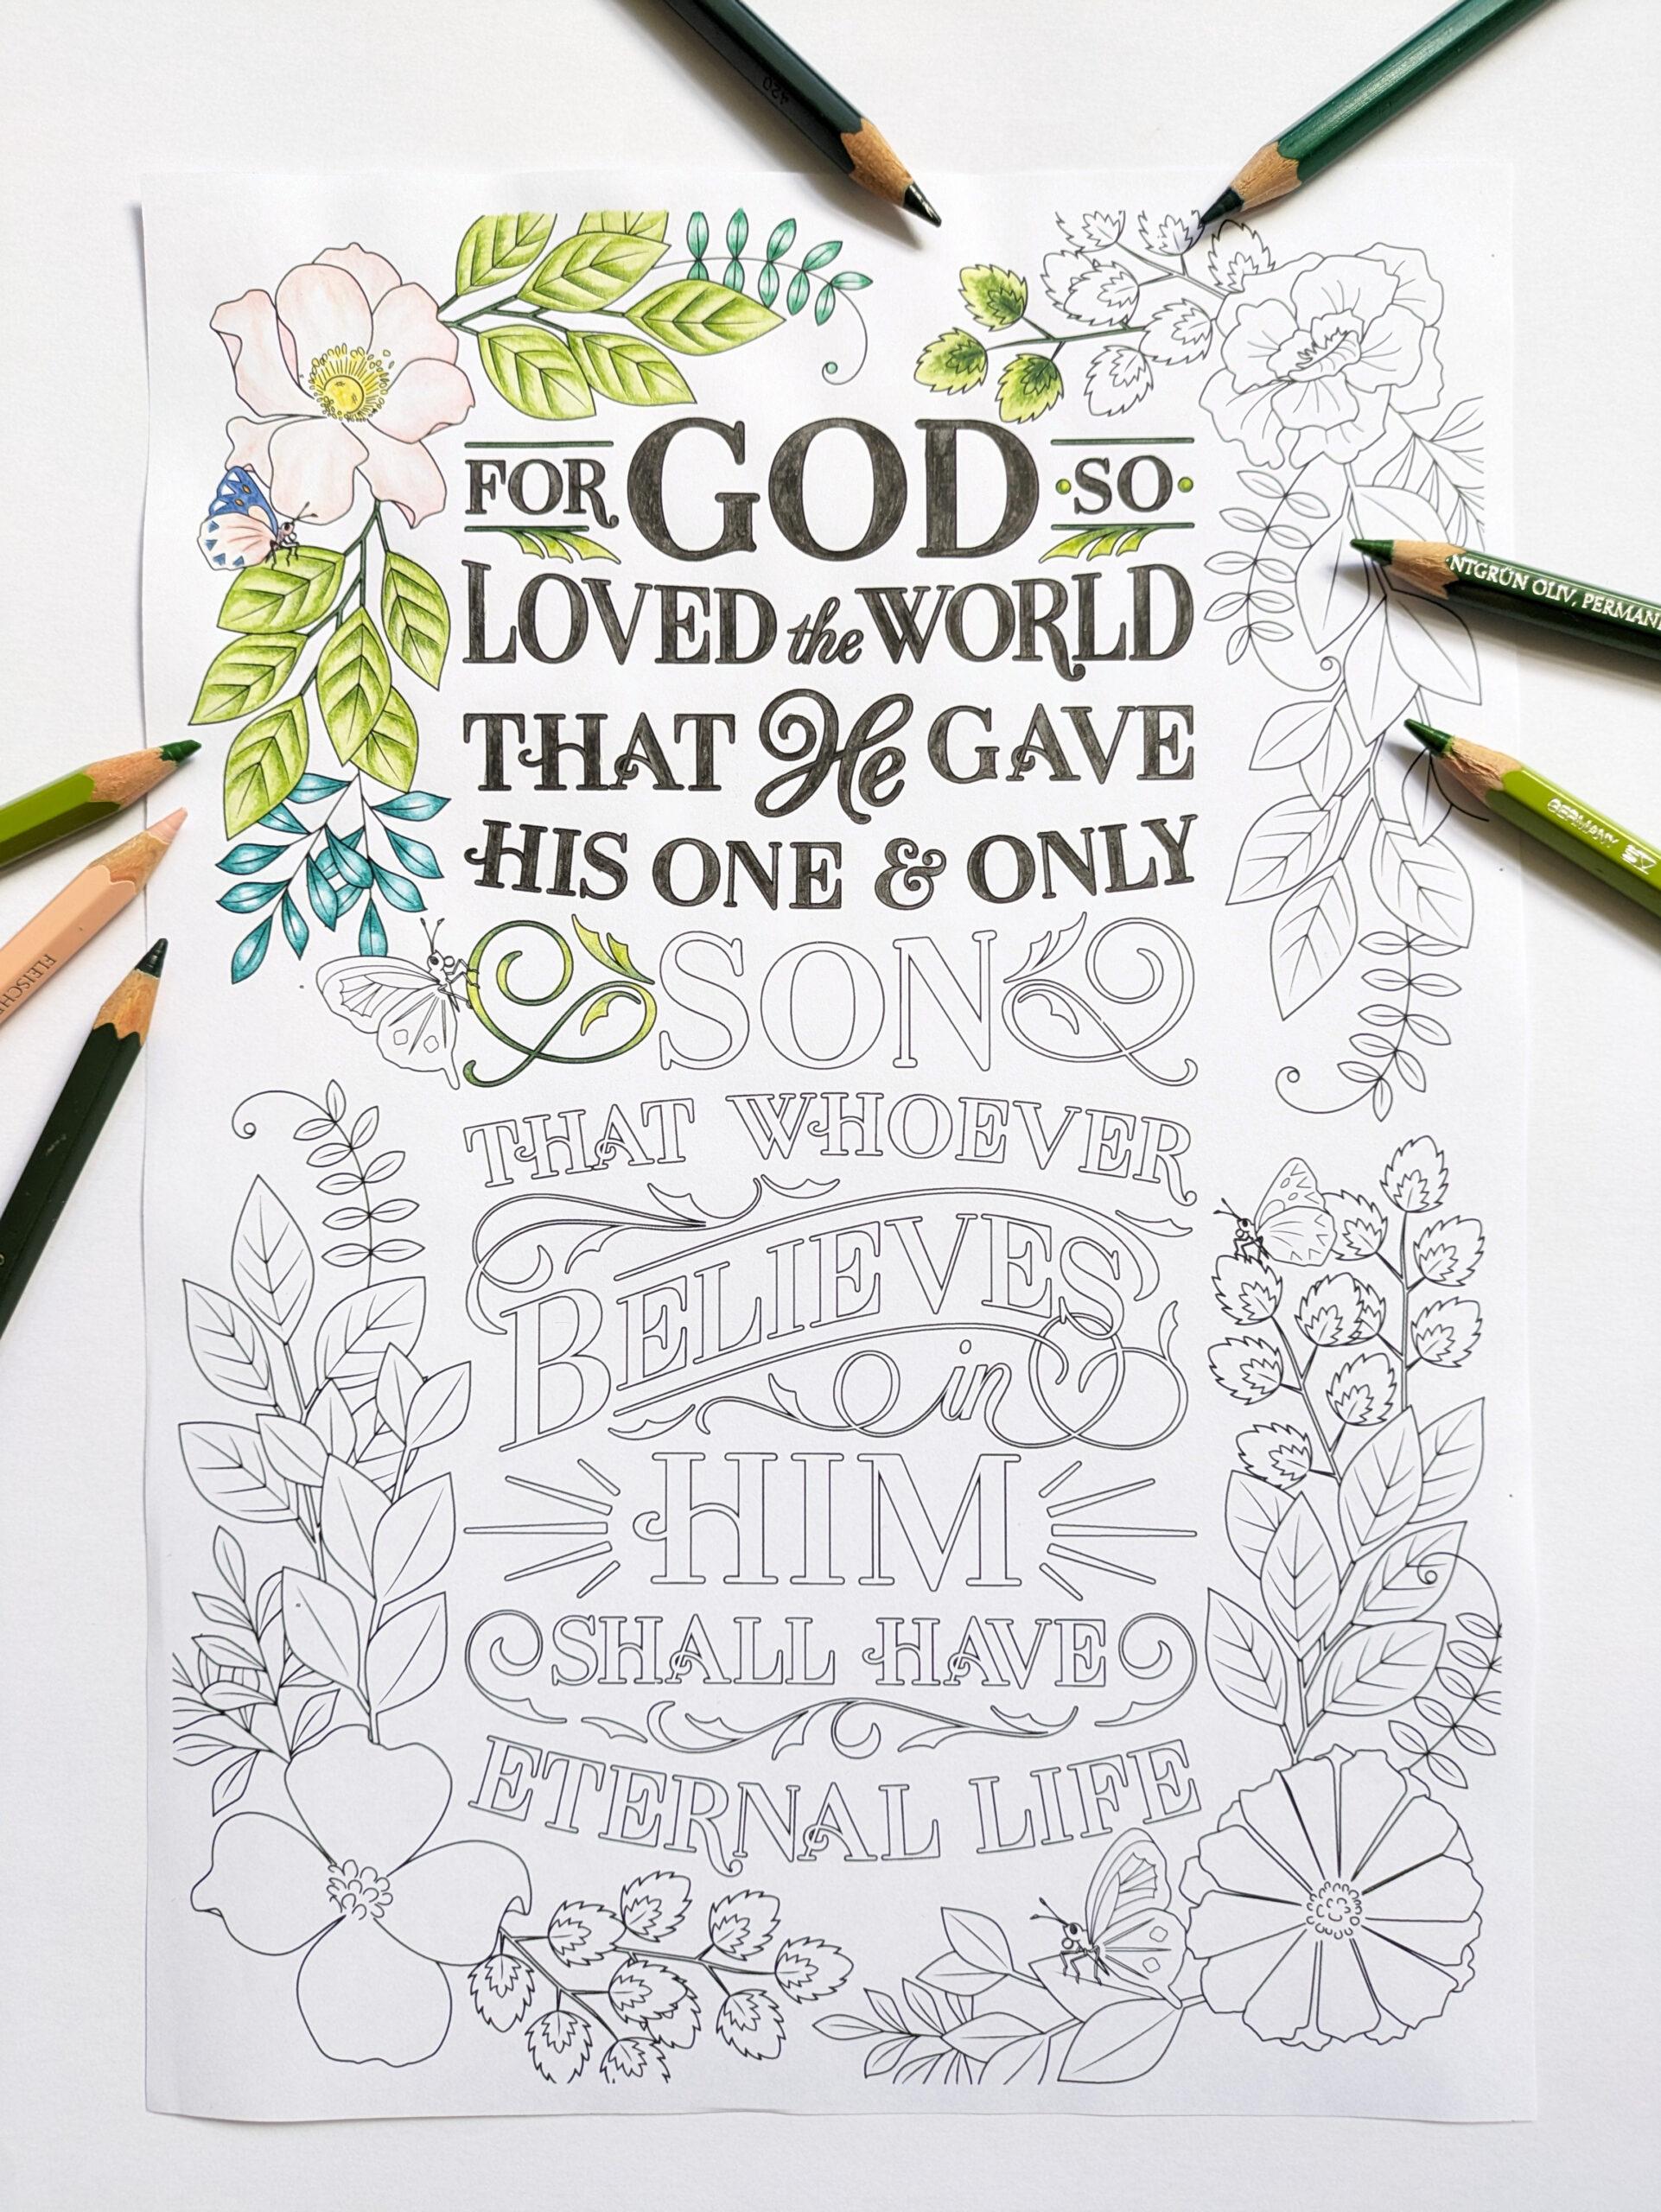 FOR GOD ·SO·
LOVED the WORLD
THAT He GAVE
HIS ONE & ONLY
SON
THAT WHOEVER
BELIEVES
in
HIM
SHALL HAVE
ETERNAL LIFE
420
NTGRÜN OLIV, PERMAN
GERMANY
FLEISCH